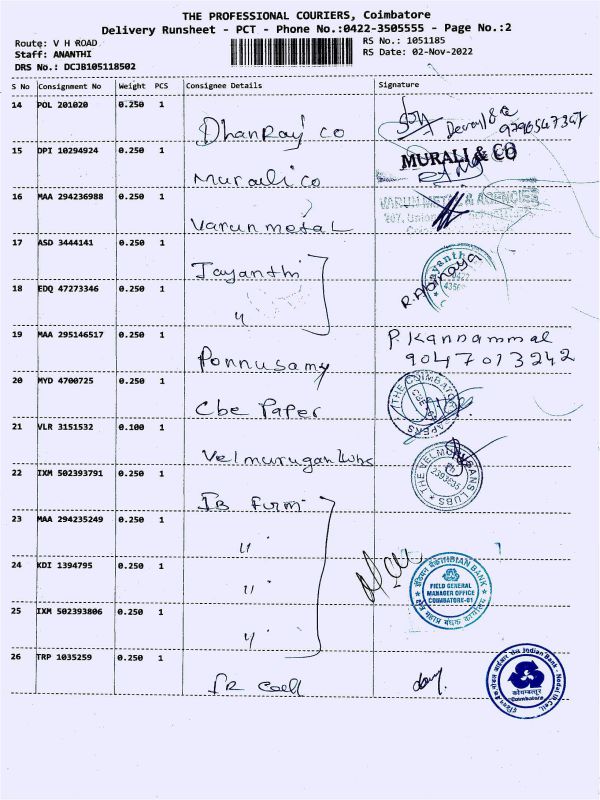 THE PROFESSIONAL COURIERS, Coimbatore
Delivery Runsheet - PCT - Phone No.:0422-3505555 - Page No.:2
Route: V H ROAD
RS No.: 1051185
Staff: ANANTHI
RS Date: 02-Nov-2022
DRS No.: DCJB105118502
S No Consignment No Weight PCS Consignee Details Signature
14 POL 201020 0.250 1
Dhanraj co
9796547367
15 DPI 10294924 0.250 1
MURALI & CO
Murali co
16 MAA 294236988 0.250 1
VARUN METAL & AGENCIES
Varun metal
17 ASD 3444141 0.250 1
Jayanthi
R. Abinaya
18 EDQ 47273346 0.250 1
"
19 MAA 295146517 0.250 1
P. Kannammal
9047013242
Ponnusamy
20 MYD 4700725 0.250 1
Cbe Paper
THE COIMBATORE PAPERS
21 VLR 3151532 0.100 1
Velmurugan Lubs
THE VELMURUGANS LUBS
22 IXM 502393791 0.250 1
IB Firm
23 MAA 294235249 0.250 1
"
24 KDI 1394795 0.250 1
"
INDIAN BANK
FIELD GENERAL
MANAGER OFFICE
COIMBATORE-01
25 IXM 502393806 0.250 1
"
26 TRP 1035259 0.250 1
Indian Bank
कोयम्बत्तूर
Coimbatore